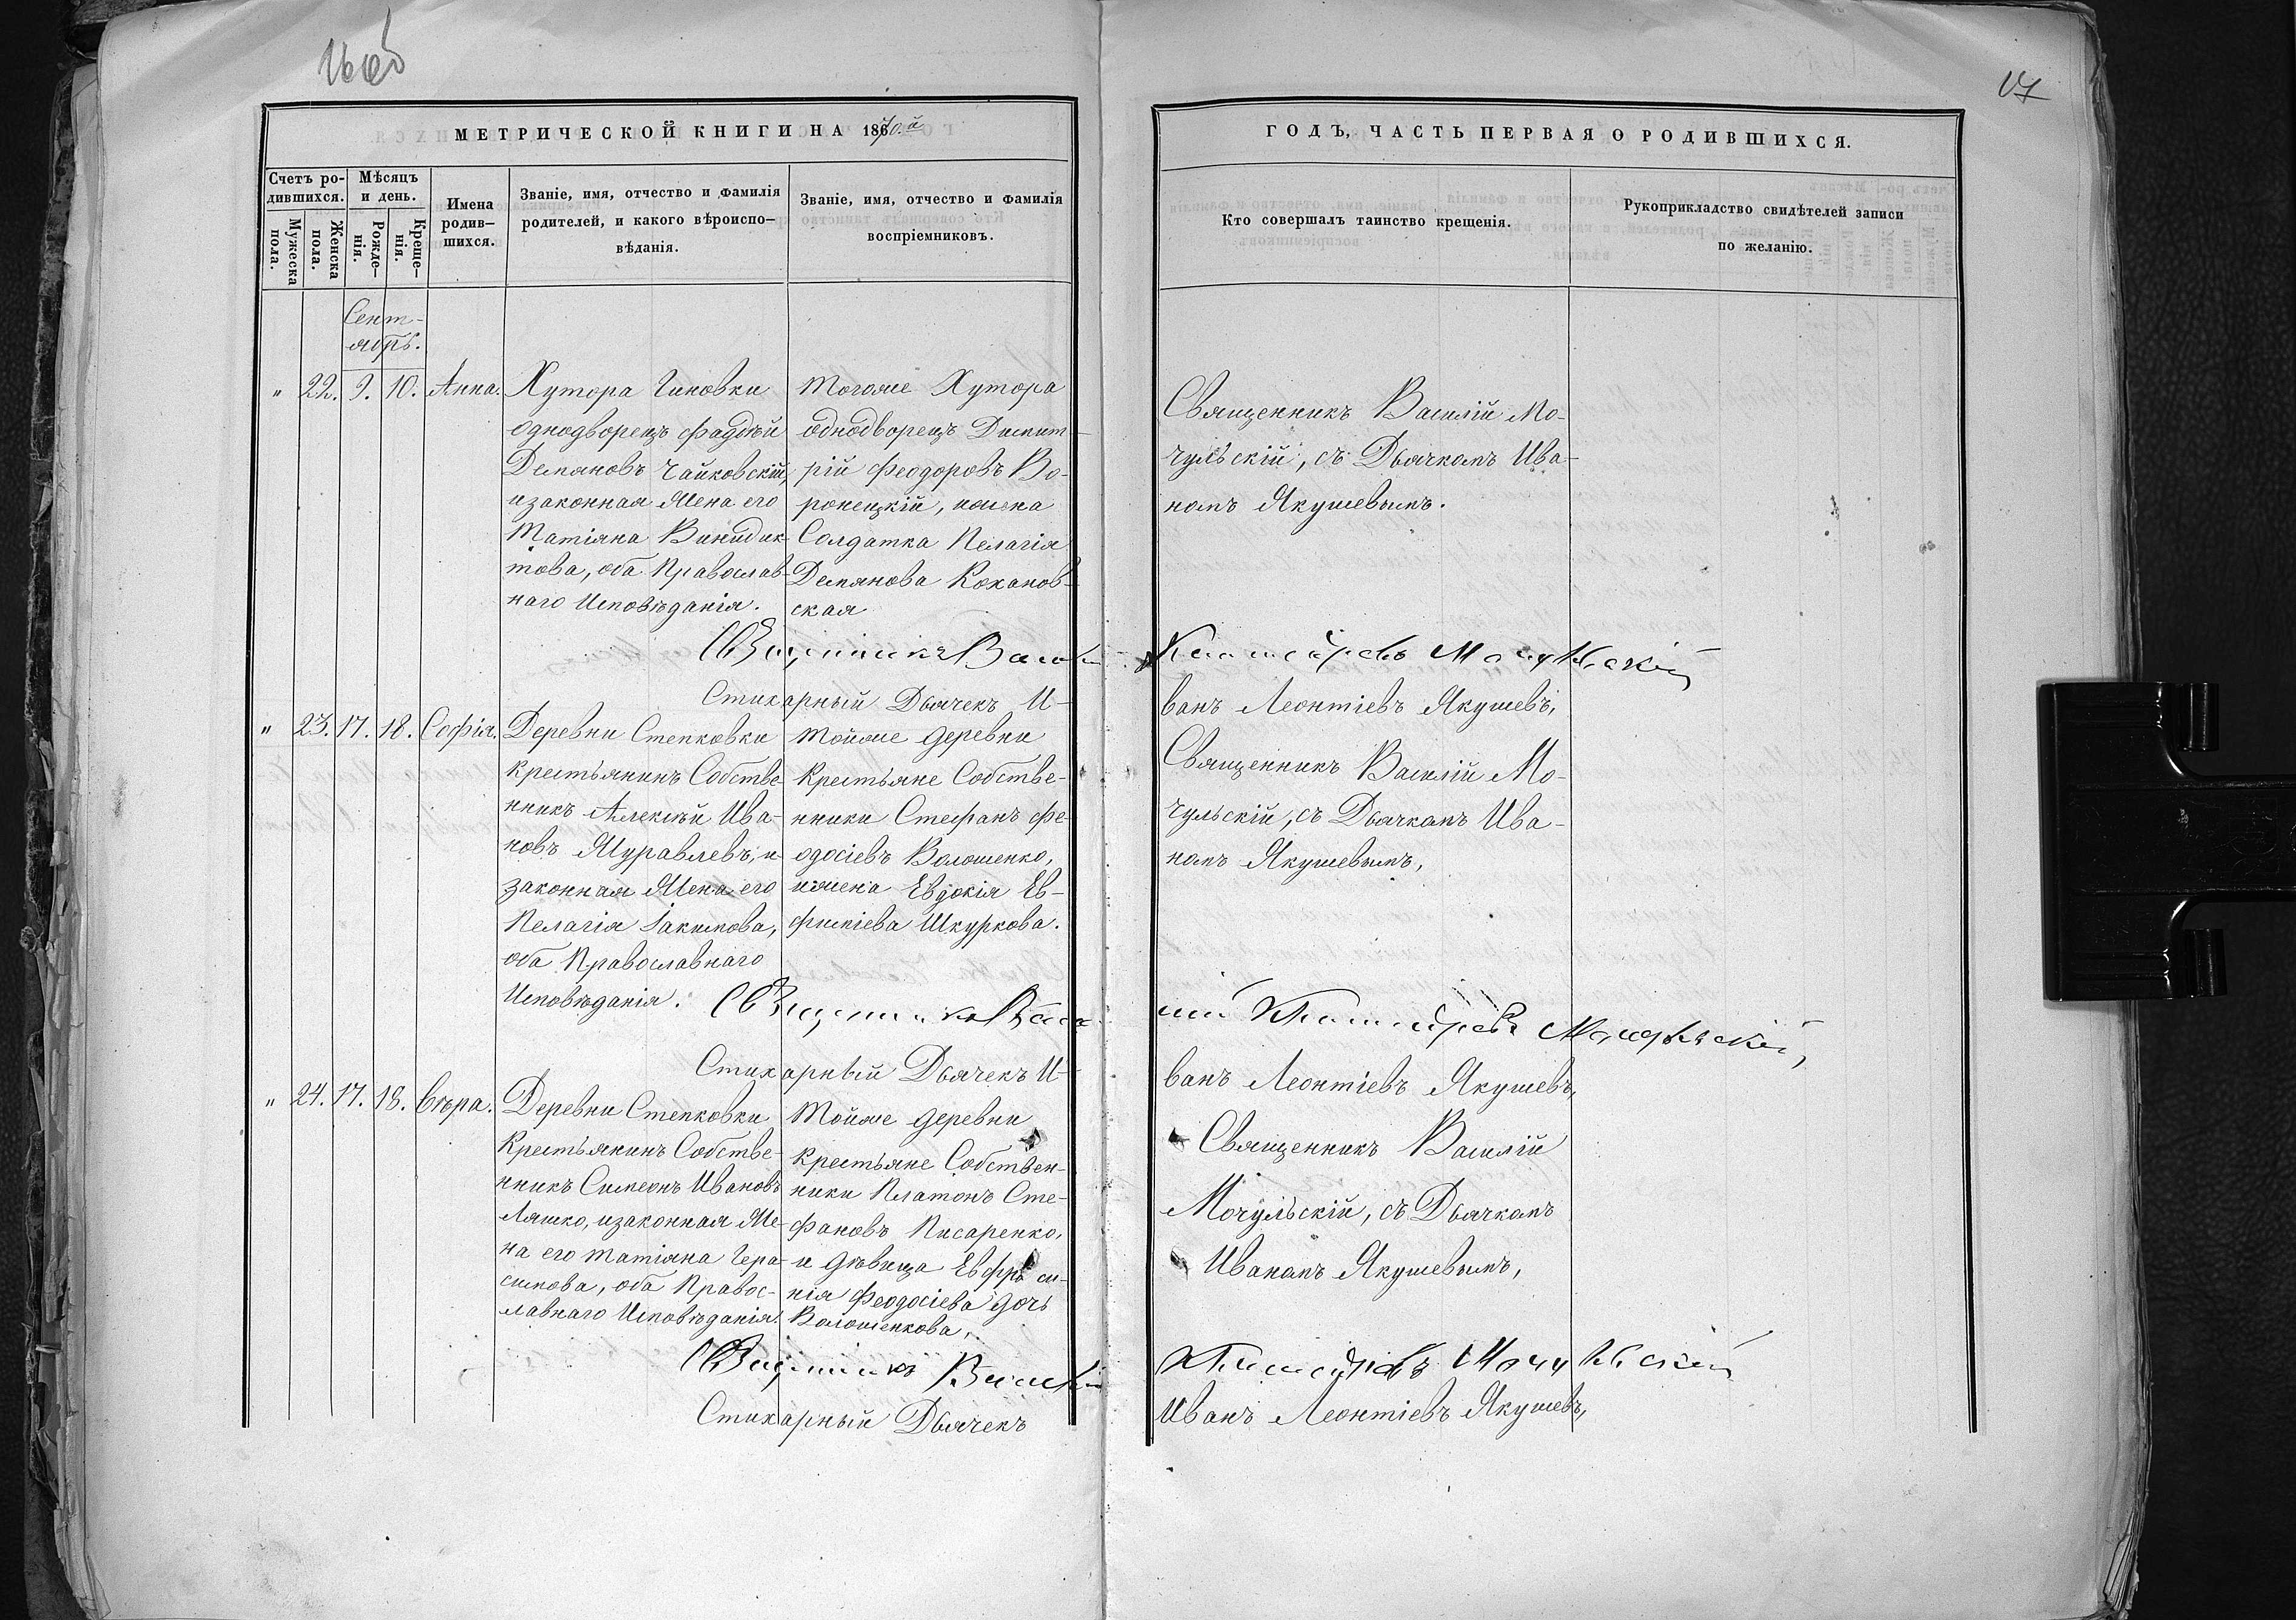 16об
17
МЕТРИЧЕСКОЙ КНИГИ НА 1870.й
ГОДЪ, ЧАСТЬ ПЕРВАЯ О РОДИВШИХСЯ.
Счетъ ро-
дившихся.
Мужеска
пола.
Женска
пола.
Мѣсяцъ
и день.
Рожде-
нія.
Креще-
нія.
Имена
родив-
шихся.
Званіе, имя, отчество и фамилія
родителей, и какого вѣроиспо-
вѣданія.
Званіе, имя, отчество и фамилія
воспріемниковъ.
Кто совершалъ таинство крещенія.
Рукоприкладство свидѣтелей записи
по желанію.
Сент-
ябрь.
" 22. 9. 10. Анна.
Хутора Гиновки
однодворецъ Фадѣй
Демяновъ Чайковскій,
изаконная Жена его
Татіяна Винидик-
това, оба Православ-
наго Исповѣданія.
Тогоже Хутора
однодворецъ Димит-
рій Феодоровъ Во-
ронецкій, ижена
Солдатка Пелагія
Демянова Кохановъ-
ская
Священникъ Василій Мо-
чульскій, съ Дьячкомъ Ива-
номъ Якушевымъ.
Священникъ Василій
Мочульскій
Стихарный Дьячекъ И-
ванъ Леонтіевъ Якушевъ,
" 23. 17. 18. Софія.
Деревни Степковки
крестьянинъ Собстве-
нникъ Алексѣй Ива-
новъ Журавлевъ, и
законная Жена его
Пелагія Іакимова,
оба Православнаго
Исповѣданія.
Тойже деревни
Крестьяне Собстве-
нники Стефанъ Фе-
одосіевъ Волошенко,
ижена Евдокія Ев-
фиміева Шкуркова.
Священникъ Василій Мо-
чульскій, съ Дьячкомъ Ива-
номъ Якушевымъ,
Священникъ Васи
лій Мочульскій,
Стихарный Дьячекъ И-
ванъ Леонтіевъ Якушевъ,
" 24. 17. 18. Вѣра.
Деревни Степковки
Крестьянинъ Собстве-
нникъ Симеонъ Ивановъ
Ляшко, изаконная Же-
на его Татіяна Гера-
симова, оба Правос-
лавнаго Исповѣданія.
Тойже деревни
Крестьяне Собствен-
ники Платонъ Сте-
фановъ Писаренко,
и дѣвица Евфроси-
нія Феодосіева дочь
Волошенкова,
Священникъ Василій
Мочульскій, съ Дьячкомъ
Иваномъ Якушевымъ,
Священникъ Василій
Мочульскій
Стихарный Дьячекъ
Иванъ Леонтіевъ Якушевъ,